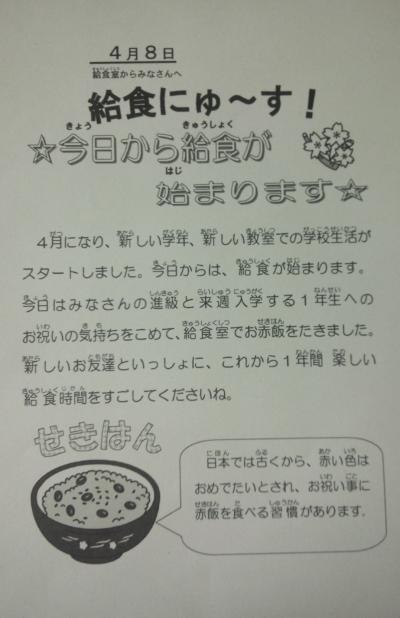 4月8日
給食室からみなさんへ
給食にゅ〜す！
☆今日から給食が
始まります☆
4月になり、新しい学年、新しい教室での学校生活が
スタートしました。今日からは、給食が始まります。
今日はみなさんの進級と来週入学する1年生への
お祝いの気持ちをこめて、給食室でお赤飯をたきました。
新しいお友達といっしょに、これから1年間楽しい
給食時間をすごしてくださいね。
せきはん
日本では古くから、赤い色は
おめでたいとされ、お祝い事に
赤飯を食べる習慣があります。